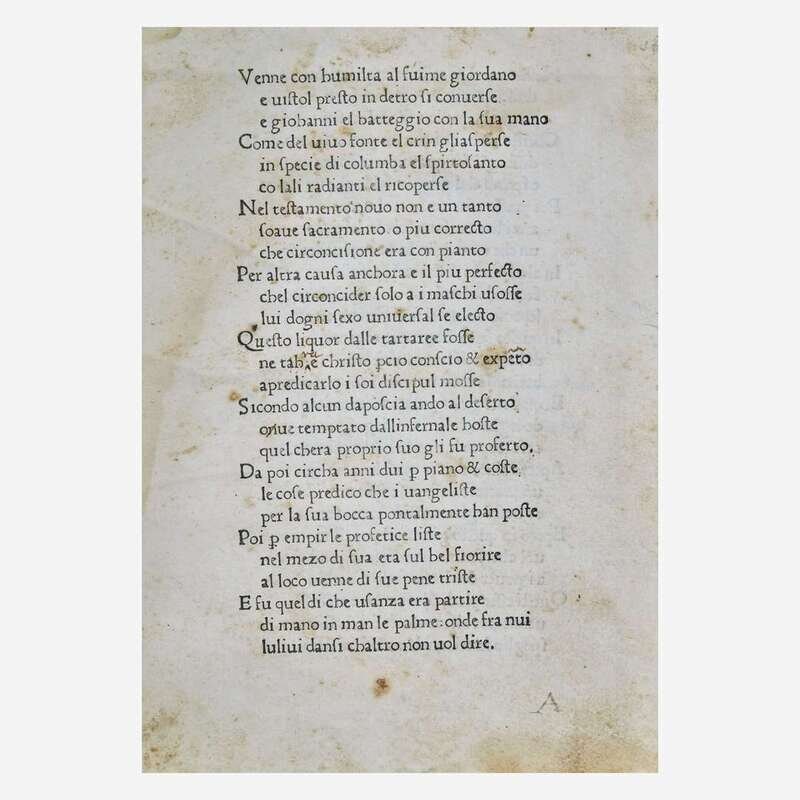 Venne con humilta al fuime giordano
e uistol presto in detro si conuerse
e giohanni el batteggio con la sua mano
Come del uiuo fonte el crin gliasperse
in specie di columba el spirtosanto
co lali radianti el ricoperse
Nel testamento nouo non e un tanto
soaue sacramento o piu correcto
che circoncisione era con pianto
Per altra causa anchora e il piu perfecto
chel circoncider solo a i maschi usosse
lui dogni sexo uniuersal se electo
Questo liquor dalle tartaree fosse
ne christo pcio conscio &
apredicarlo i soi discipul mosse
Sicondo alcun daposcia ando al deserto
temptato dallinfernale hoste
quel chera proprio suo gli fu proferto.
Da poi circha anni dui p piano & coste
le cose predico che i uangeliste
per la sua bocca pontalmente han poste
Poi ꝑ empir le profetice liste
nel mezo di sua eta sul bel fiorire
al loco uenne di sue pene triste
E fu quel di che usanza era partire
di mano in man le palme: onde fra nui
luliui dansi chaltro non uol dire.
A